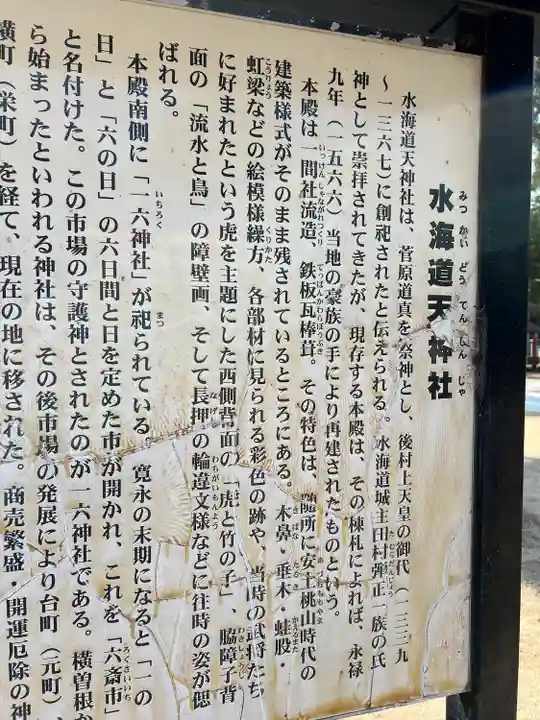 水海道天神社
みつかいどうてんじんじゃ
水海道天神社は、菅原道真を祭神とし、後村上天皇の御代(一三三九
~一三六七)に創祀されたと伝えられる。水海道城主田村弾正一族の氏
神として崇拝されてきたが、現存する本殿は、その棟札によれば、永禄
九年(一五六六)当地の豪族の手により再建されたものという。
本殿は一間社流造、鉄板瓦棒葺。その特色は、随所に安土桃山時代の
建築様式がそのまま残されているところにある。木鼻・垂木・蛙股・
虹梁などの絵模様繰方、各部材に見られる彩色の跡や、当時の武将たち
に好まれたという虎を主題にした西側背面の「虎と竹の子」、脇障子背
面の「流水と鳥」の障壁画、そして長押の輪違文様などに往時の姿が偲
ばれる。
本殿南側に「一六神社」が祀られている。寛永の末期になると「一の
日」と「六の日」の六日間と日を定めた市が開かれ、これを「六斎市」
と名付けた。この市場の守護神とされたのが一六神社である。横曽根か
ら始まったといわれる神社は、その後市場の発展により台町(元町)、
横町(栄町)を経て、現在の地に移された。商売繁盛・開運厄除の神